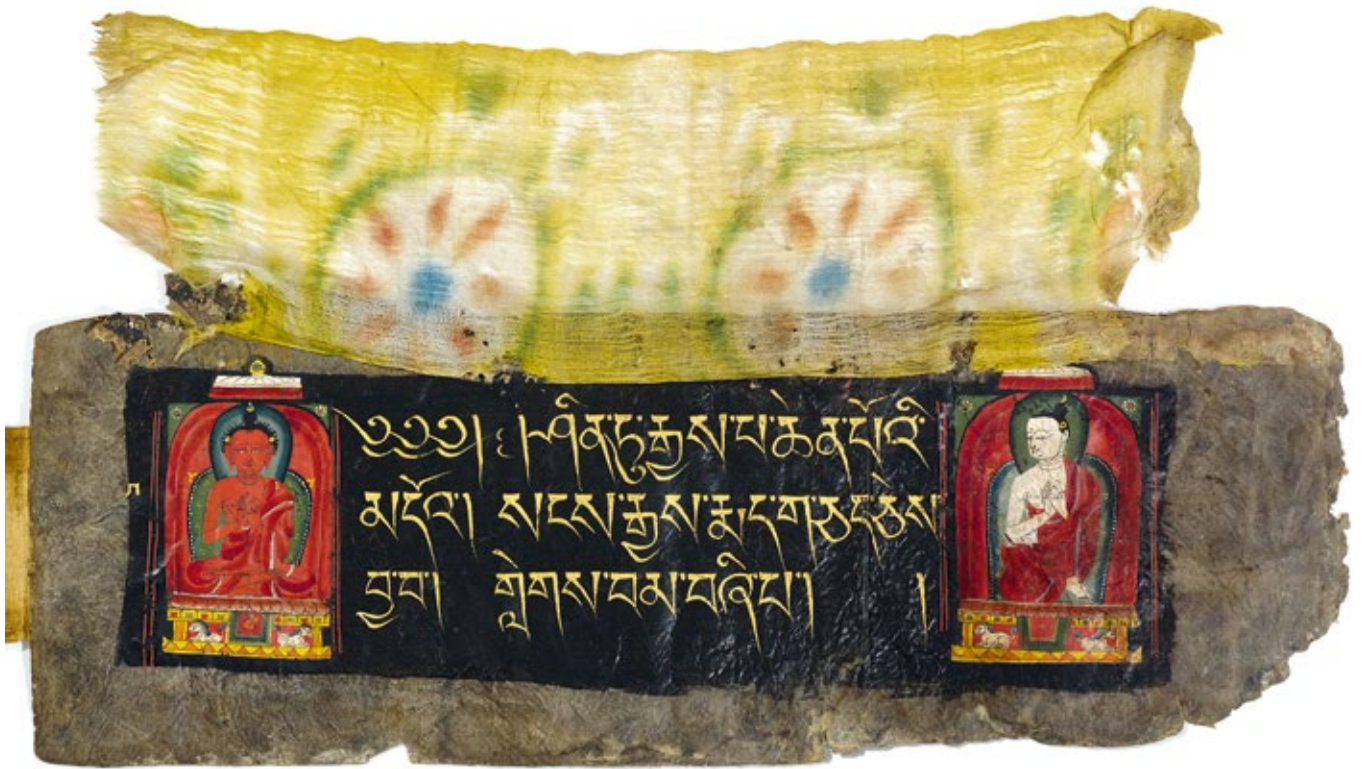 ༄༅༅། ། །ཤིན་ཏུ་རྒྱས་པ་ཆེན་པོའི་
མདོའ། སངས་རྒྱས་རྨད་གཅད་ཅེས་
བྱ་བ། གླེགས་བམ་བཞི་པ། །